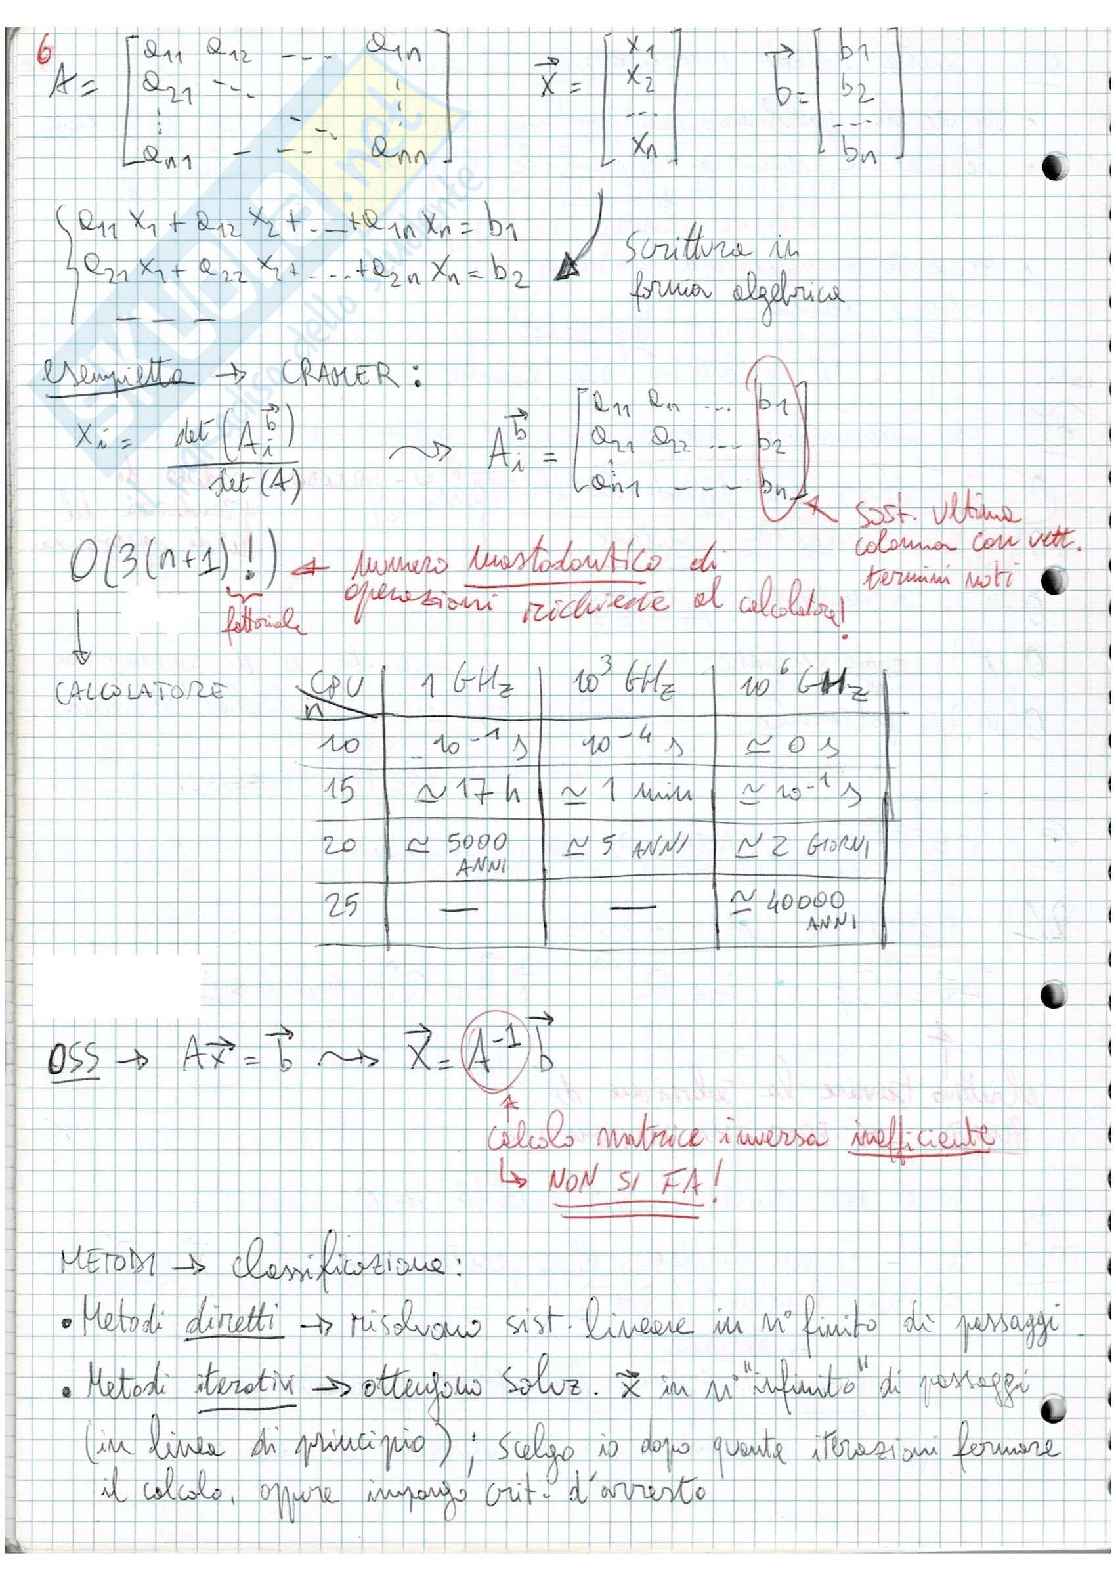 6
A = [a11 a12 ---- a1n
a21 --. ⋮
⋮ --.
an1 - --- ann]
x⃗ = [x1
x2
...
xn]
b⃗ = [b1
b2
---
bn]
{a11 x1 + a12 x2 + .... + a1n xn = b1
a21 x1 + a22 x2 + .... + a2n xn = b2
— — —
scrittura in
forma algebrica
esempietto → CRAMER:
xi = det(Ai^b⃗) / det(A)
Ai^b⃗ = [a11 an ... b1
a21 a22 ... b2
an1 - - - - bn]
sost. ultima
colonna con vett.
termini noti
O(3(n+1)!) ← numero mastodontico di
operazioni richieste al calcolatore!
fattoriale
↓
CALCOLATORE
CPU n | 1 GHz | 10^3 GHz | 10^6 GHz
10 | 10^-1 s | 10^-4 s | ≃ 0 s
15 | ≃ 17 h | ≃ 1 min | ≃ 10^-1 s
20 | ≃ 5000 ANNI | ≃ 5 ANNI | ≃ 2 GIORNI
25 | — | — | ≃ 40000 ANNI
OSS → Ax⃗ = b⃗ ⇝ x⃗ = A^-1 b⃗
calcolo matrice inversa inefficiente
↳ NON SI FA!
METODI → classificazione:
• Metodi diretti → risolvono sist. lineare in n° finito di passaggi
• Metodi iterativi → ottengono soluz. x⃗ in n° "infinito" di passaggi
(in linea di principio); scelgo io dopo quante iterazioni fermare
il calcolo, oppure impongo crit. d'arresto
SKUOLA.net
il paradiso dello studente